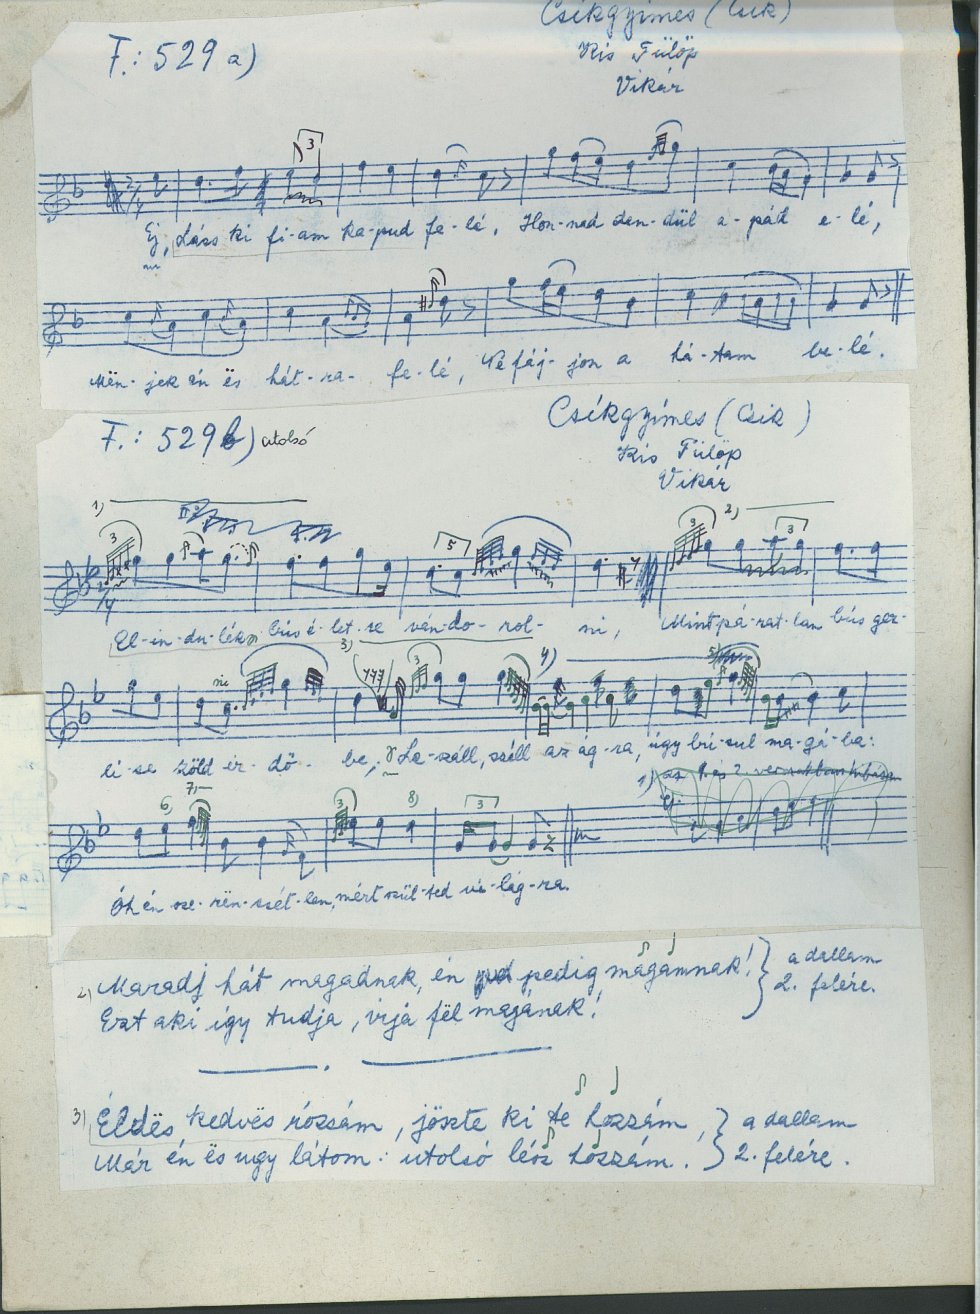 Csíkgyimes (Csík)
F.: 529 a)
Kis Fülöp
Vikár
3
Ej, Láss ki fi-am ka-pud fe-lé, Hon-nad den-dül a-pád e-lé,
Mën-jek én ës hát-ra- fe-lé, Në fáj-jon a há-tam be-lé.
F.: 529 b) utolsó
Csíkgyímes (Csík)
Kis Fülöp
Vikár
1) 2)
3 5 3 3
El-in-du-lék bús é-let-re ván-do-rol- ni, Mint pá-rat-lan bús ger-
3) 4) 5)
3
li-se zöld er-dő- be, Le-száll, száll az ág-ra, úgy bú-sul ma-gá-ba:
6) 7) 8)
3 3
Óh én sze-rën-csét-len, mért szül-ted vi-lág-ra.
2) Maradj hát magadnak, én pedig magamnak! } a dallam
Ezt aki így tudja, vija fël magának! 2. felére.
3) Éldës kedvës rózsám, jöszte ki te hozzám, } a dallam
Már én ës ugy látom: utolsó lësz hozzám. 2. felére.